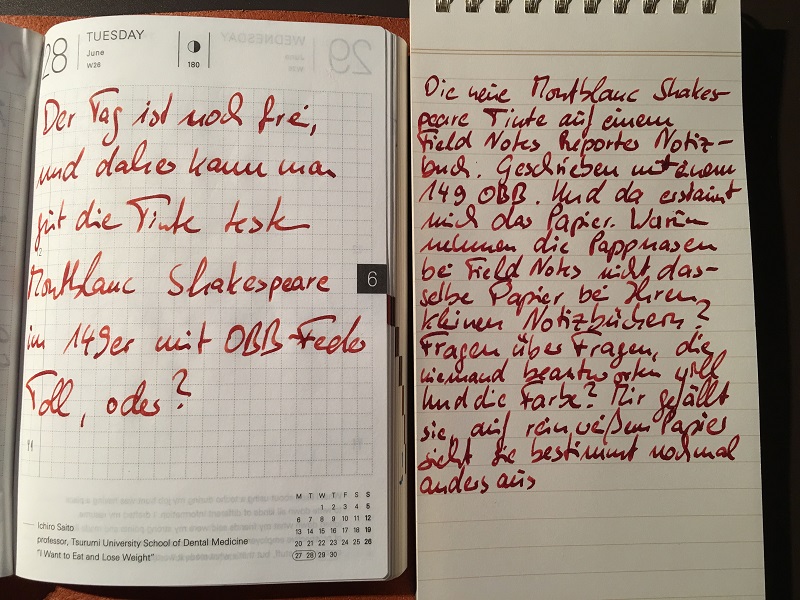 28
TUESDAY
June
W26
180
WEDNESDAY
June
29
Der Tag ist noch frei,
und daher kann man
gut die Tinte testen
Montblanc Shakespeare
im 149er mit OBB-Feder
Toll, oder?
6
M T W T F S S
1 2 3 4 5
6 7 8 9 10 11 12
13 14 15 16 17 18 19
20 21 22 23 24 25 26
27 28 29 30
Ichiro Saito
professor, Tsurumi University School of Dental Medicine
"I Want to Eat and Lose Weight"
Die neue Montblanc Shakes-
peare Tinte auf einem
Field Notes Reporter Notiz-
buch. Geschrieben mit einem
149 OBB. Und da erstaunt
mich das Papier. Warum
nehmen die Pappnasen
bei Field Notes nicht das-
selbe Papier bei Ihren
kleinen Notizbüchern?
Fragen über Fragen, die
niemand beantworten will
Und die Farbe? Mir gefällt
sie, auf rein weißem Papier
sieht sie bestimmt nochmal
anders aus